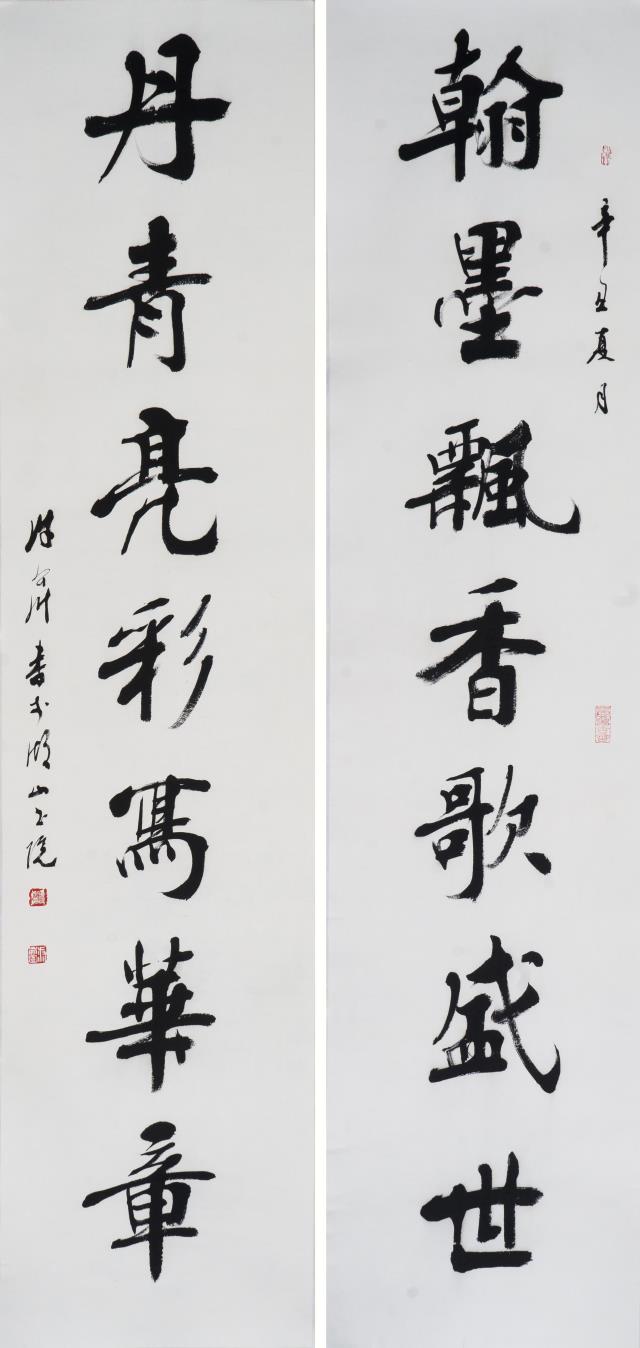 辛丑夏月
翰墨飄香歌盛世
丹青亮彩寫華章
書於湖山書院